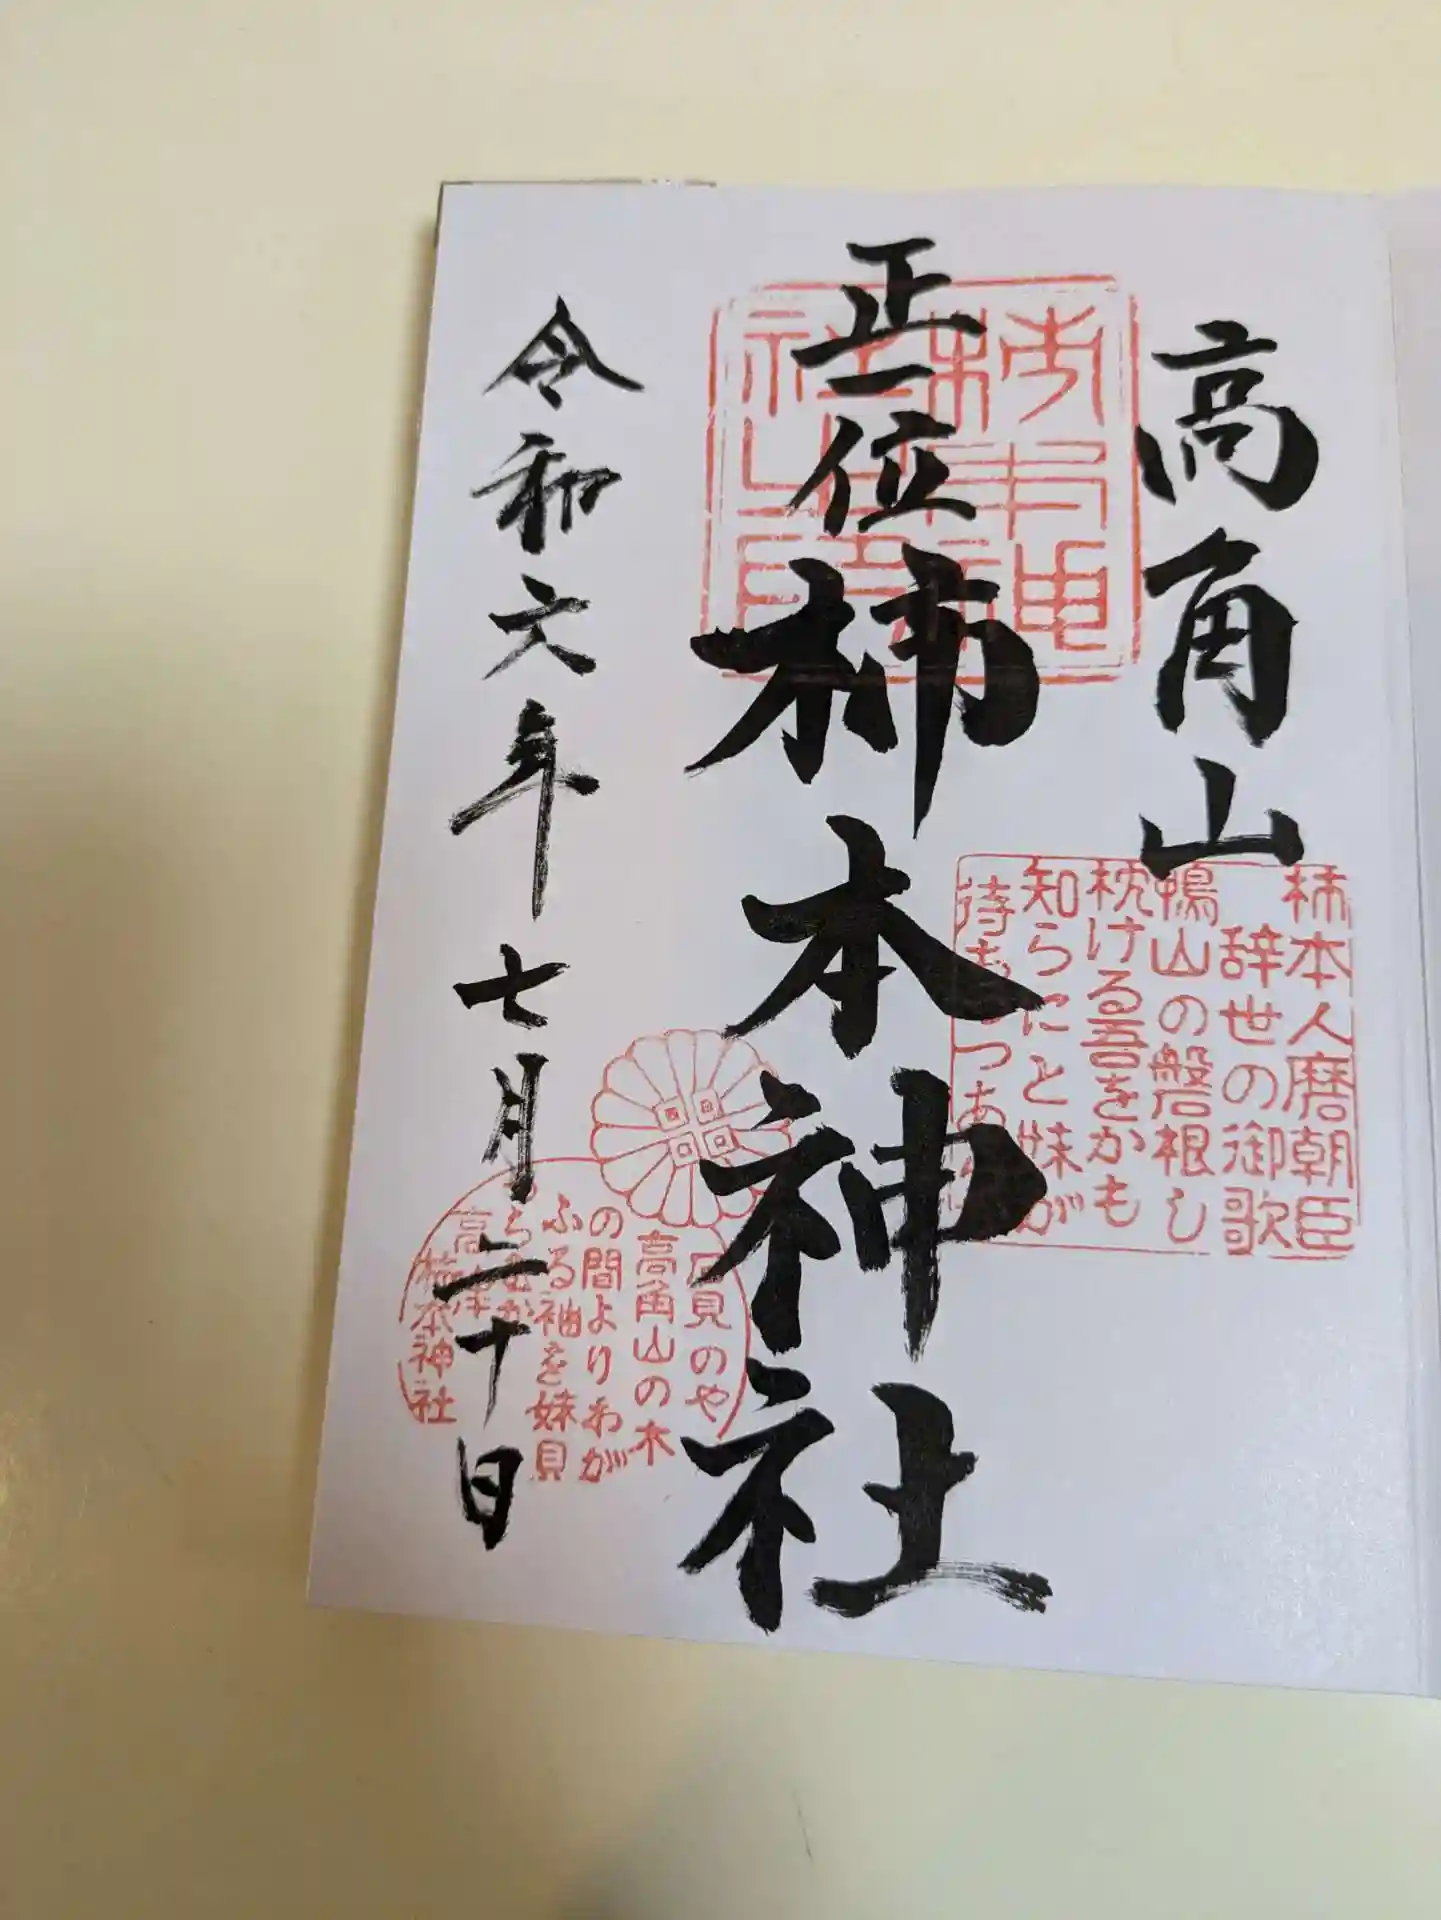 高角山
正一位
柿本神社
令和六年七月二十日
柿本人麿朝臣
辞世の御歌
鴨山の磐根し
枕ける吾をかも
知らにと妹が
待ちつつあ
石見のや
高角山の木
の間よりわが
ふる袖を妹見
高
柿本神社
柿本神社之印